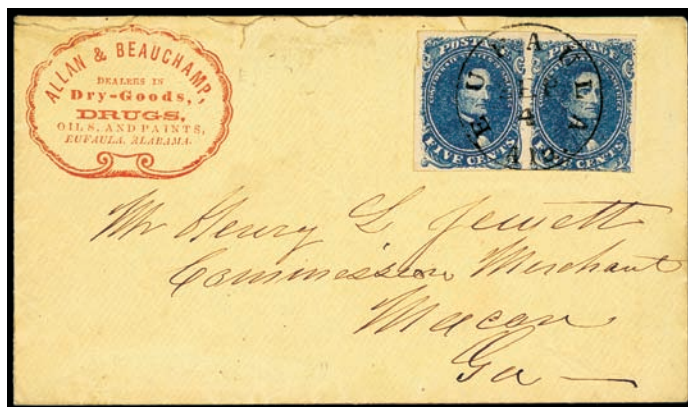 ALLAN & BEAUCHAMP,
DEALERS IN
Dry-Goods,
DRUGS,
OILS, AND PAINTS,
EUFAULA, ALABAMA.
POSTAGE
FIVE CENTS
EUFAULA
Mr Henry L Jewett
Commission Merchant
Macon
Ga